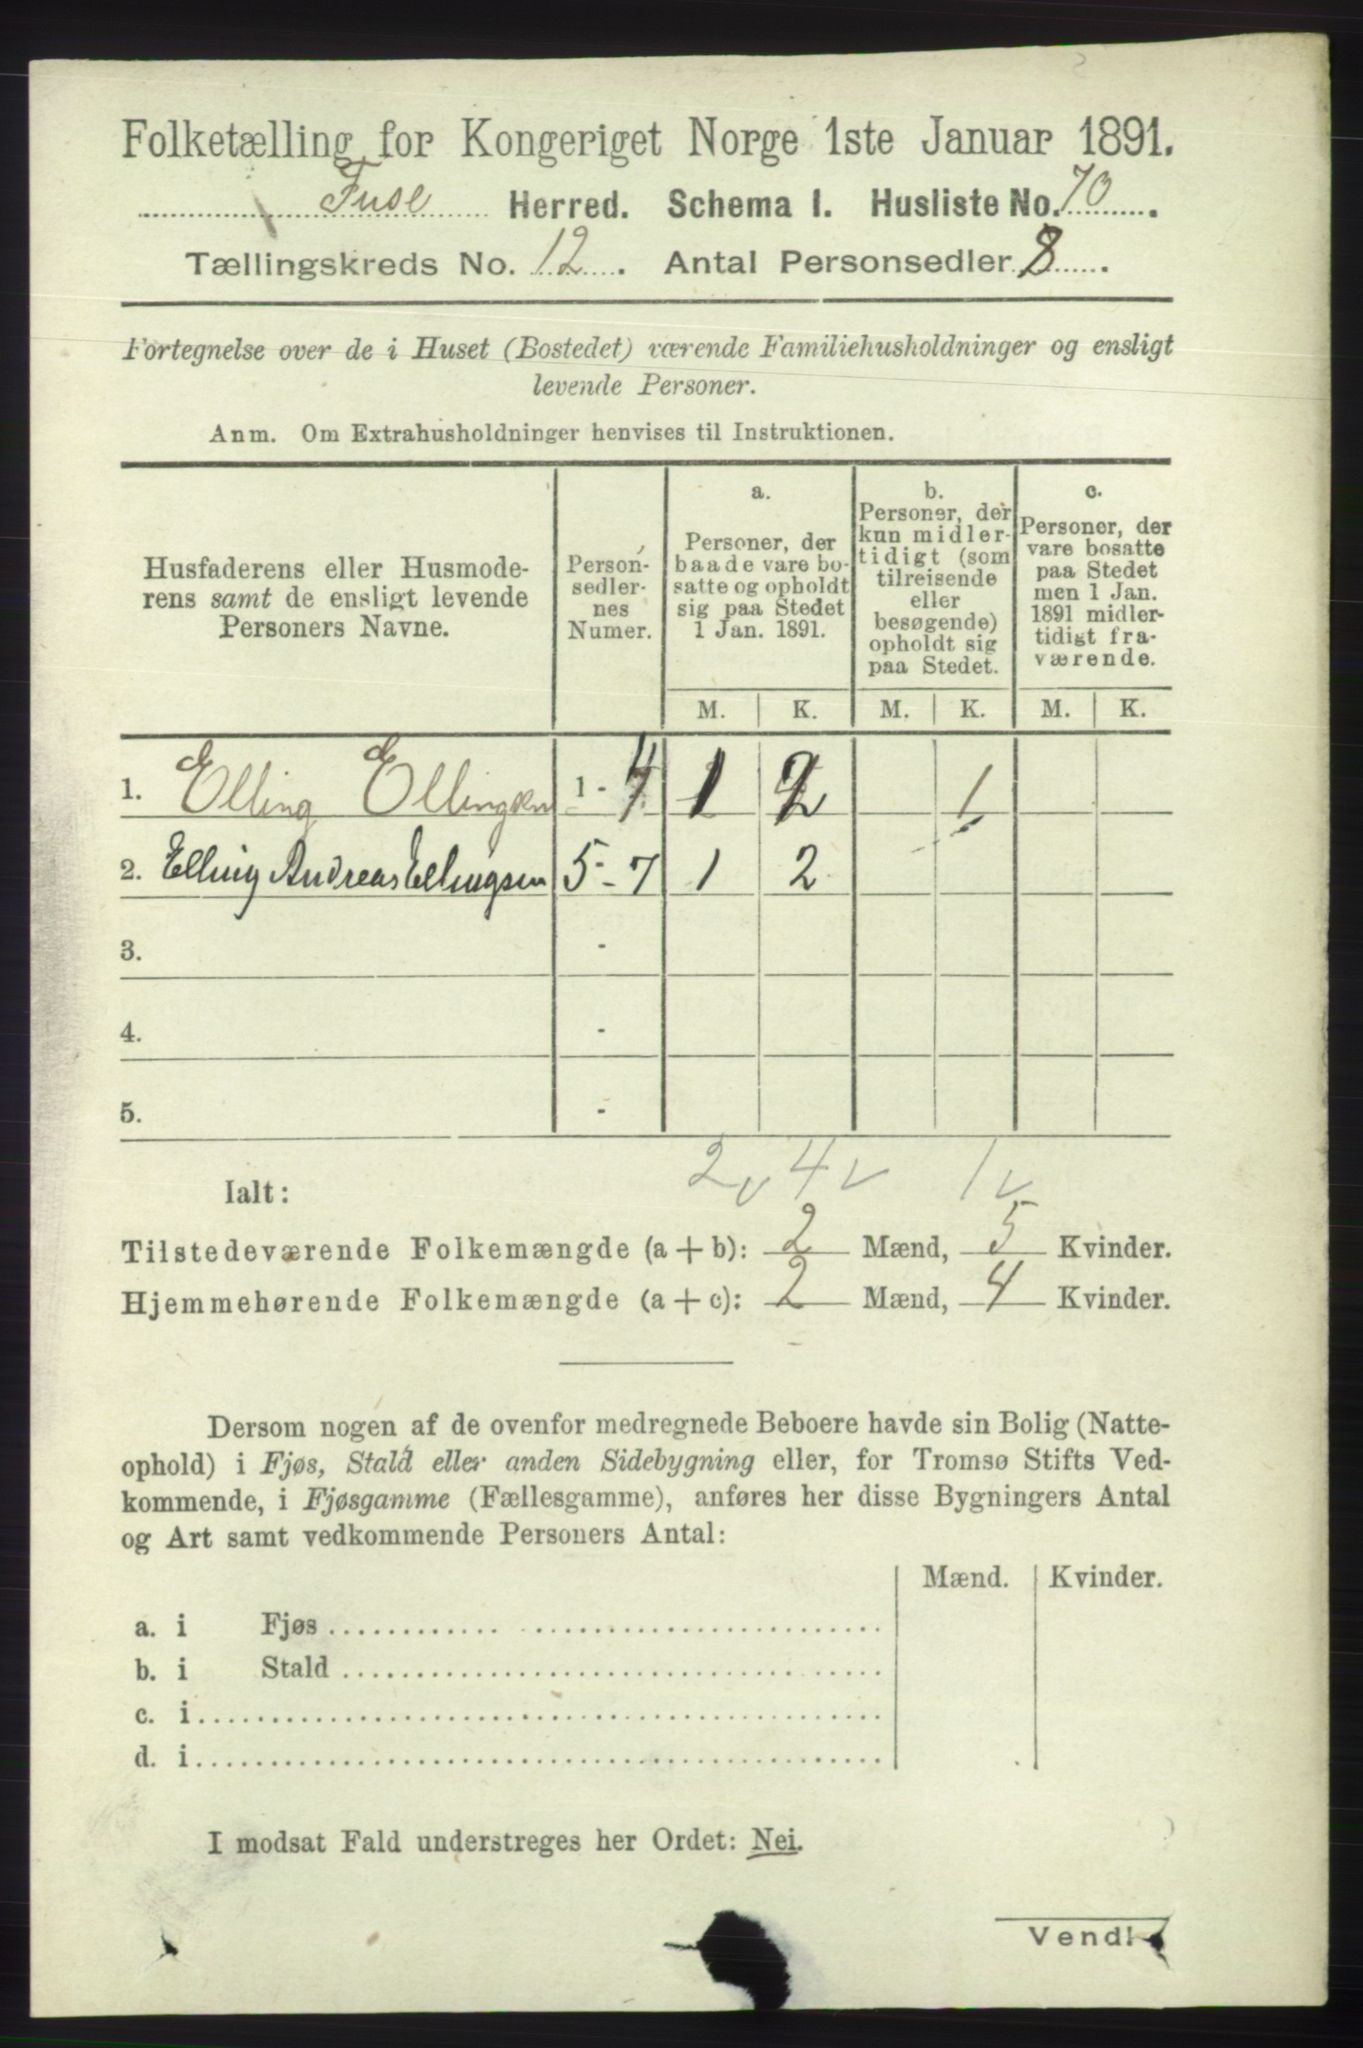 Folketælling for Kongeriget Norge 1ste Januar 1891.
Fuse Herred. Schema I. Husliste No. 70.
Tællingskreds No. 12. Antal Personsedler 8.
Fortegnelse over de i Huset (Bostedet) værende Familiehusholdninger og ensligt
levende Personer.
Anm. Om Extrahusholdninger henvises til Instruktionen.
Husfaderens eller Husmode-
rens samt de ensligt levende
Personers Navne.
Person-
sedler-
nes
Numer.
a.
Personer, der
baade vare bo-
satte og opholdt
sig paa Stedet
1 Jan. 1891.
b.
Personer, der
kun midler-
tidigt (som
tilreisende
eller
besøgende)
opholdt sig
paa Stedet.
c.
Personer, der
vare bosatte
paa Stedet
men 1 Jan.
1891 midler-
tidigt fra-
værende.
M. K. M. K. M. K.
1. Elling Ellingsen 1 - 4 1 2 1
2. Elling Andreas Ellingsen 5 - 7 1 2
3. -
4. -
5. -
Ialt: 2 4 1
Tilstedeværende Folkemængde (a + b): 2 Mænd, 5 Kvinder.
Hjemmehørende Folkemængde (a + c): 2 Mænd, 4 Kvinder.
Dersom nogen af de ovenfor medregnede Beboere havde sin Bolig (Natte-
ophold) i Fjøs, Stald eller anden Sidebygning eller, for Tromsø Stifts Ved-
kommende, i Fjøsgamme (Fællesgamme), anføres her disse Bygningers Antal
og Art samt vedkommende Personers Antal:
Mænd. Kvinder.
a. i Fjøs
b. i Stald
c. i
d. i
I modsat Fald understreges her Ordet: Nei.
Vend!